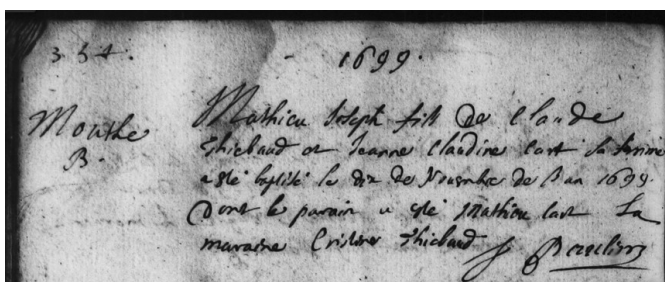 354.
1699.
Mouthe
B.
Mathieu Joseph fils De Claude
Thiebaud et Jeanne Claudine Cart sa femme
a esté baptisé le dix de Novembre de l'an 1699.
Dont le parain a esté Mathieu Cart La
maraine Thiebaud